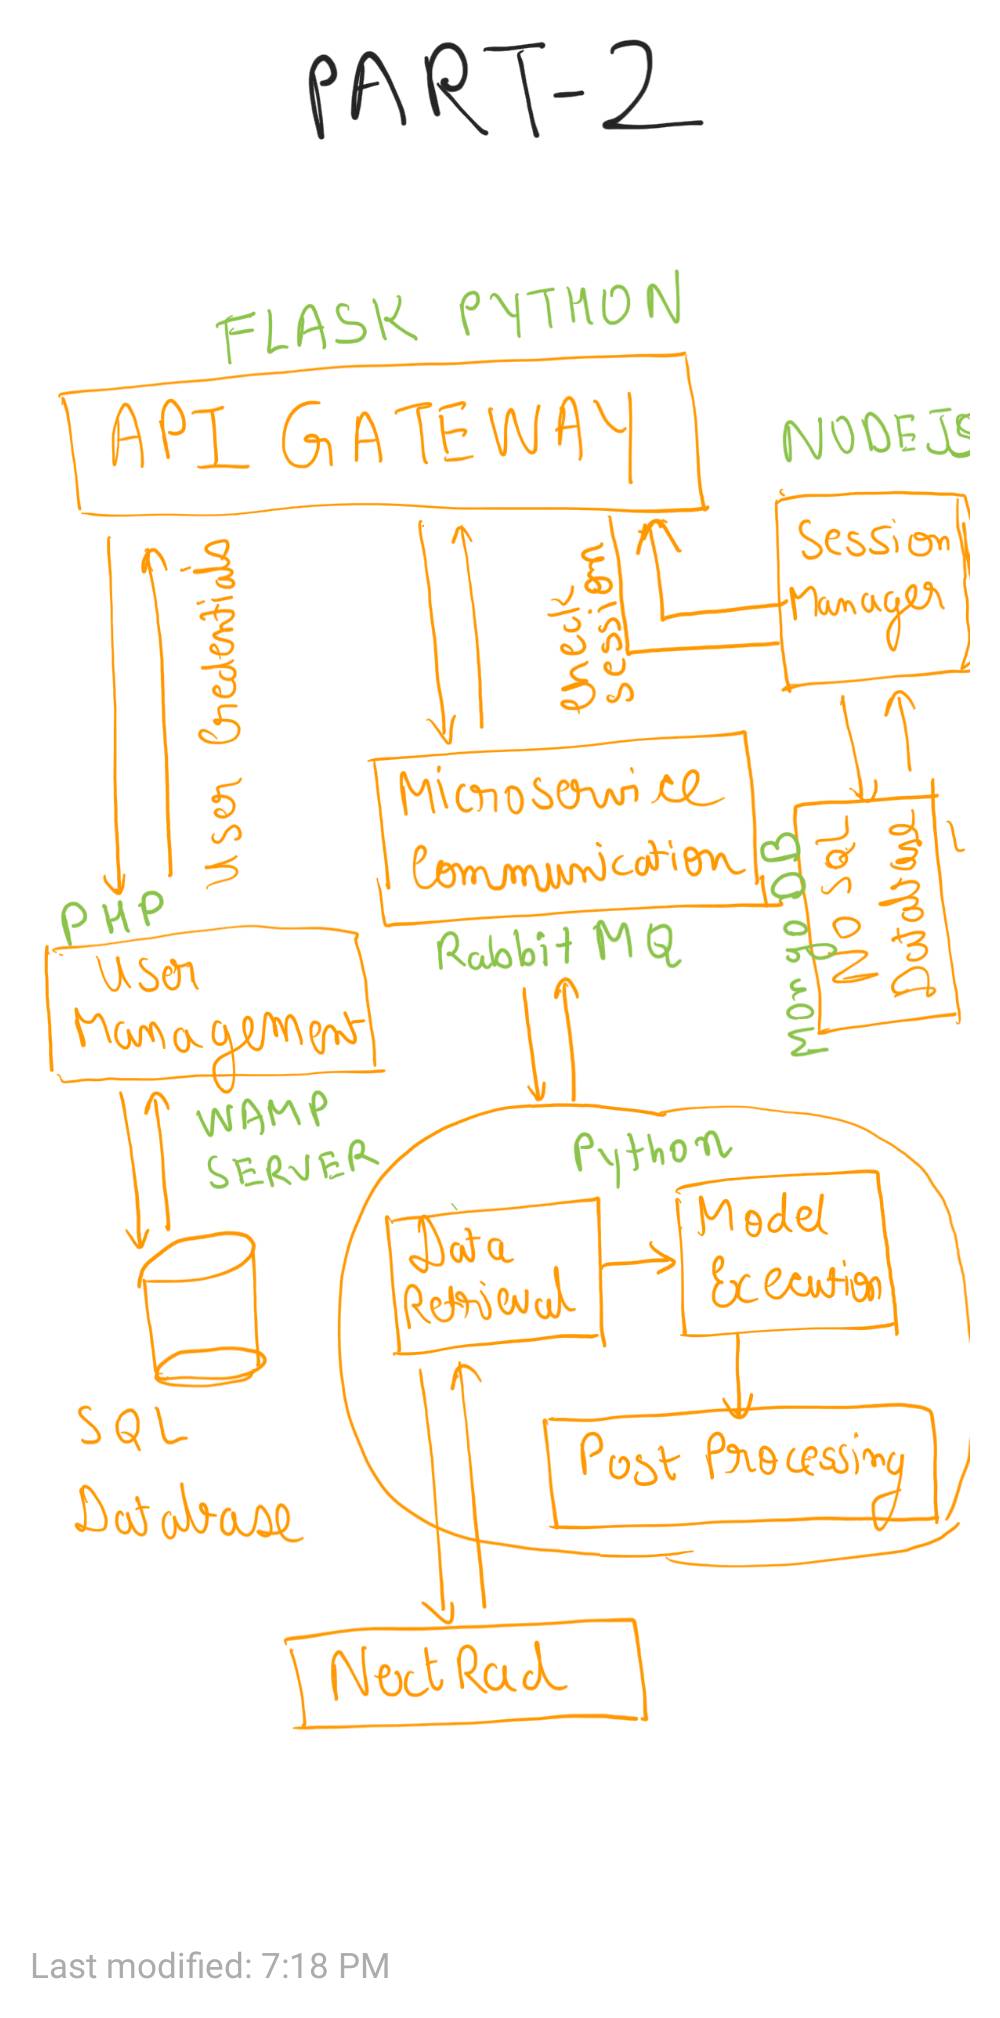 PART-2
FLASK PYTHON
API GATEWAY
NODEJS
Session
Manager
User Credentials
check
session
Microservice
Communication
Rabbit MQ
Mongo DB
No SQL
Database
PHP
User
Management
WAMP
SERVER
SQL
Database
Python
Data
Retrieval
Model
Execution
Post Processing
NextRad
Last modified: 7:18 PM